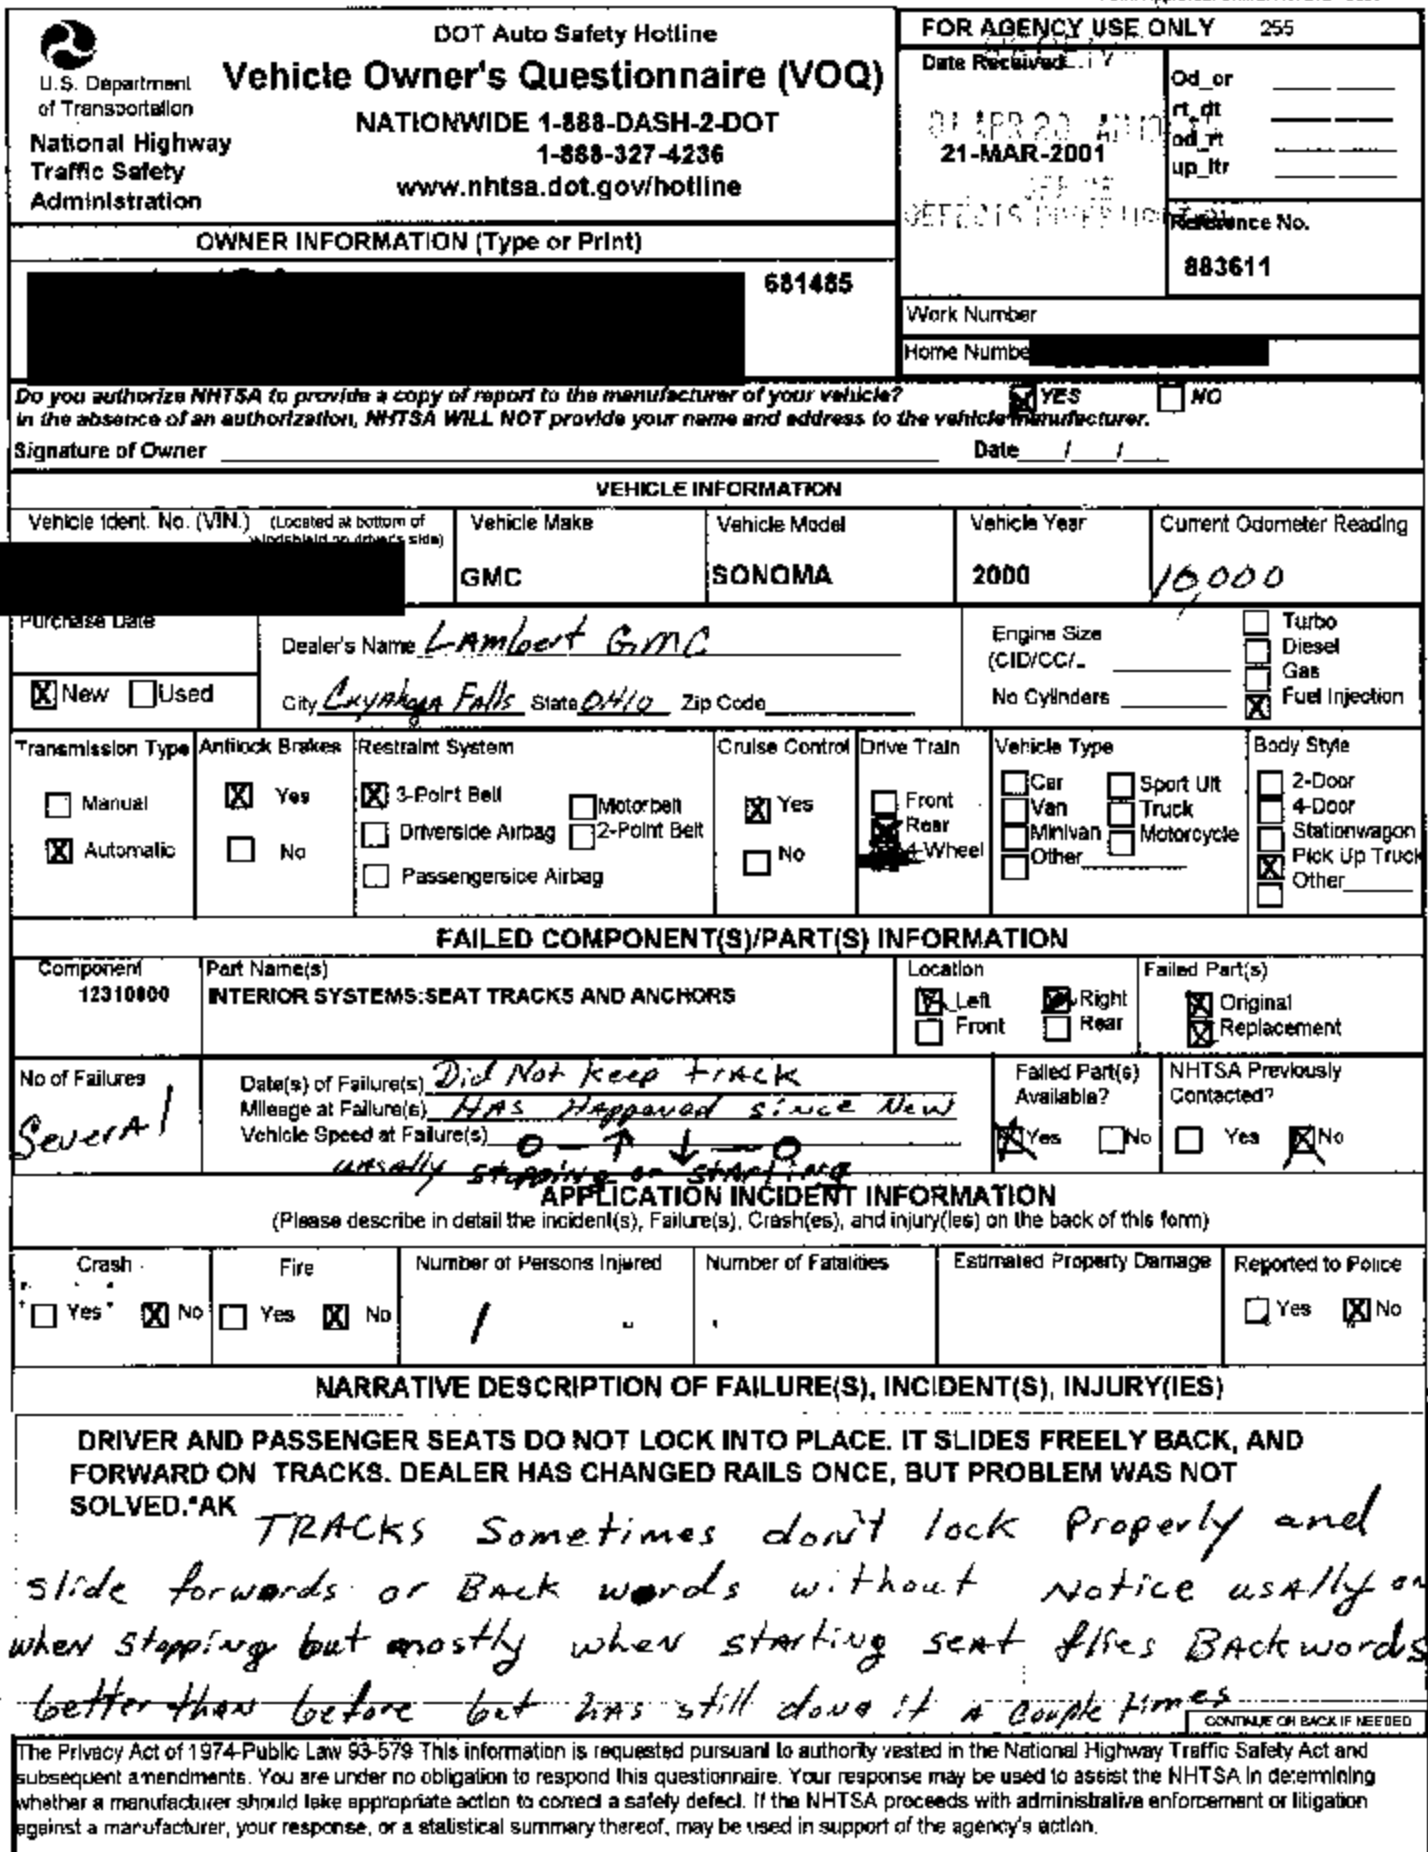 DOT Auto Safety Hotline
Vehicle Owner's Questionnaire (VOQ)
NATIONWIDE 1-888-DASH-2-DOT
1-888-327-4236
www.nhtsa.dot.gov/hotline
U.S. Department
of Transportation
National Highway
Traffic Safety
Administration
FOR AGENCY USE ONLY 255
Date Received
21-MAR-2001
Od_or
rt_dt
od_rt
up_ltr
Reference No.
883611
OWNER INFORMATION (Type or Print)
681485
Work Number
Home Numbe
Do you authorize NHTSA to provide a copy of report to the manufacturer of your vehicle? YES NO
In the absence of an authorization, NHTSA WILL NOT provide your name and address to the vehicle manufacturer.
Signature of Owner Date / /
VEHICLE INFORMATION
Vehicle Ident. No. (VIN.) (Located at bottom of
windshield on driver's side)
Vehicle Make
GMC
Vehicle Model
SONOMA
Vehicle Year
2000
Current Odometer Reading
10,000
Purchase Date
X New Used
Dealer's Name LAmbert GMC
City Cuyahoga Falls State OHIO Zip Code
Engine Size
(CID/CC/
No Cylinders
Turbo
Diesel
Gas
X Fuel Injection
Transmission Type
Manual
X Automatic
Antilock Brakes
X Yes
No
Restraint System
X 3-Point Belt Motorbelt
Driverside Airbag 2-Point Belt
Passengerside Airbag
Cruise Control
X Yes
No
Drive Train
Front
Rear
4-Wheel
Vehicle Type
Car Sport Ult
Van Truck
Minivan Motorcycle
Other
Body Style
2-Door
4-Door
Stationwagon
X Pick Up Truck
Other
FAILED COMPONENT(S)/PART(S) INFORMATION
Component
12310000
Part Name(s)
INTERIOR SYSTEMS:SEAT TRACKS AND ANCHORS
Location
X Left X Right
Front Rear
Failed Part(s)
X Original
X Replacement
No of Failures
SeverAl
Date(s) of Failure(s) Did Not keep trAck
Mileage at Failure(s) HAS HAppened since New
Vehicle Speed at Failure(s) 0 — ↑ ↓ — 0
usAlly stopping or stArting
Failed Part(s)
Available?
X Yes No
NHTSA Previously
Contacted?
Yes X No
APPLICATION INCIDENT INFORMATION
(Please describe in detail the incident(s), Failure(s), Crash(es), and injury(ies) on the back of this form)
Crash
Yes X No
Fire
Yes X No
Number of Persons Injured
/
Number of Fatalities
Estimated Property Damage
Reported to Police
Yes X No
NARRATIVE DESCRIPTION OF FAILURE(S), INCIDENT(S), INJURY(IES)
DRIVER AND PASSENGER SEATS DO NOT LOCK INTO PLACE. IT SLIDES FREELY BACK, AND
FORWARD ON TRACKS. DEALER HAS CHANGED RAILS ONCE, BUT PROBLEM WAS NOT
SOLVED.*AK TRACKS Sometimes don't lock Properly and
slide forwords or BAck words without Notice usAlly on
when stopping but mostly when stArting seAt flies BAckwords
better than before but hAs still done it A couple times
CONTINUE ON BACK IF NEEDED
The Privacy Act of 1974-Public Law 93-579 This information is requested pursuant to authority vested in the National Highway Traffic Safety Act and
subsequent amendments. You are under no obligation to respond this questionnaire. Your response may be used to assist the NHTSA in determining
whether a manufacturer should take appropriate action to correct a safety defect. If the NHTSA proceeds with administrative enforcement or litigation
against a manufacturer, your response, or a statistical summary thereof, may be used in support of the agency's action.